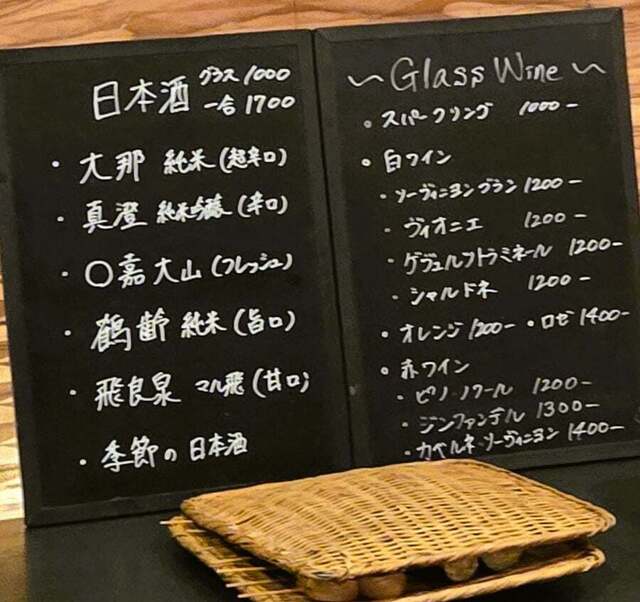 日本酒 グラス 1000
一合 1700
・大那 純米(超辛口)
・真澄 純米吟醸(辛口)
・〇嘉大山(フレッシュ)
・鶴齢 純米(旨口)
・飛良泉 マル飛(甘口)
・季節の日本酒
〜Glass Wine〜
・スパークリング 1000-
・白ワイン
・ソーヴィニヨンブラン 1200-
・ヴィオニエ 1200-
・ゲヴュルツトラミネール 1200-
・シャルドネ 1200-
・オレンジ 1200- ・ロゼ 1400-
・赤ワイン
・ピノ・ノワール 1200-
・ジンファンデル 1300-
・カベルネ・ソーヴィニヨン 1400-